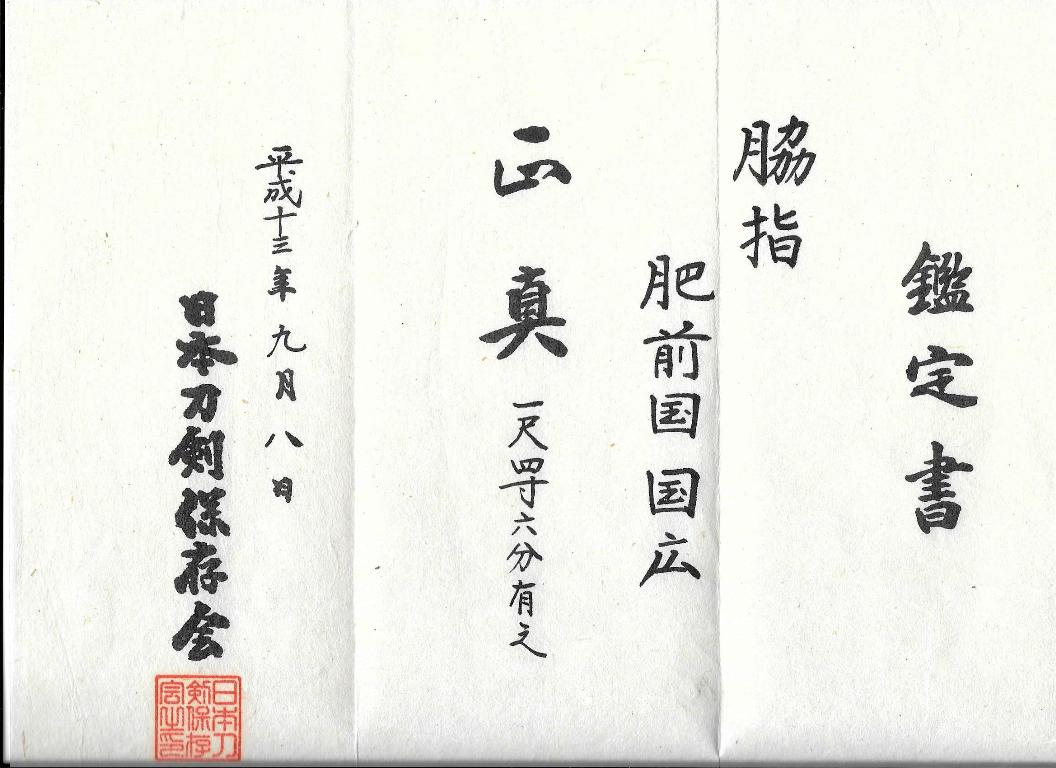 鑑定書
脇指
肥前国国広
正真
一尺四寸六分有之
平成十三年九月八日
日本刀剣保存会
日本刀
剣保存
会之印